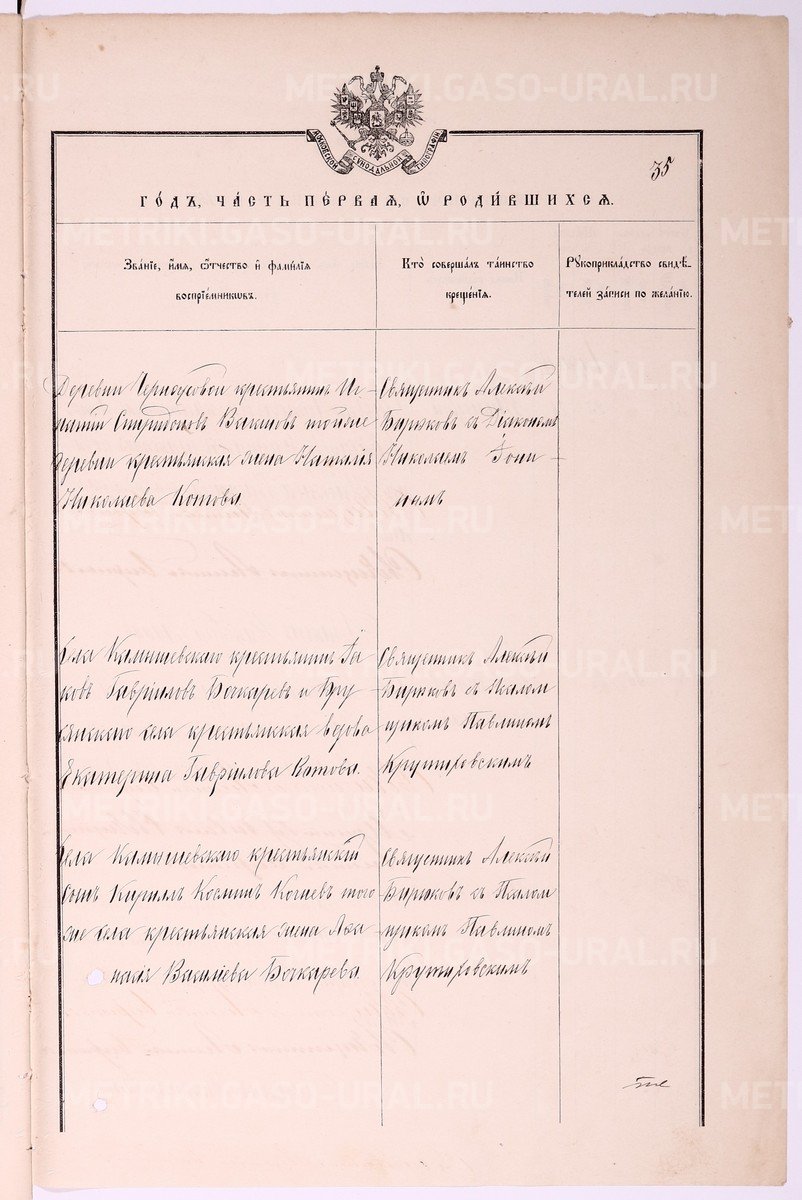 METRIKI.GASO-URAL.RU
МОСКОВСКОЙ СѴНОДАЛЬНОЙ ТИПОГРАФІИ
35
ГО́ДЪ, ЧА́СТЬ ПЕ́РВАѦ, Ѡ РОДИ́ВШИХСѦ.
Зва́нїе, и́мѧ, ѻ҆́тчество и҆ фами́лїѧ
воспрїе́мникѡвъ.
Кто̀ соверша́лъ та́инство
креще́нїѧ.
Рꙋкоприкла́дство свидѣ́-
телей за́писи по жела́нїю.
Деревни Черноусовой крестьянинъ Иг-
натій Спиридоновъ тойже
деревни крестьянская жена Наталія
Николаева Котова.
Священникъ Алексѣй
Бирюковъ съ Діакономъ
Николаемъ Іони-
нымъ
Села Камышевскаго крестьянинъ Іа-
ковъ Гавріиловъ Бочкаревъ и Бру
сянскаго села крестьянская вдова
Екатерина Гавріилова Котова.
Священникъ Алексѣй
Бирюковъ съ Псалом
щикомъ Павлиномъ
Крутиховскимъ
Села Камышевскаго крестьянскій
сынъ Кириллъ Косминъ того
же села крестьянская жена Аѳа
насія Василіева Бочкарева.
Священникъ Алексѣй
Бирюковъ съ Псалом
щикомъ Павлиномъ
Крутиховскимъ